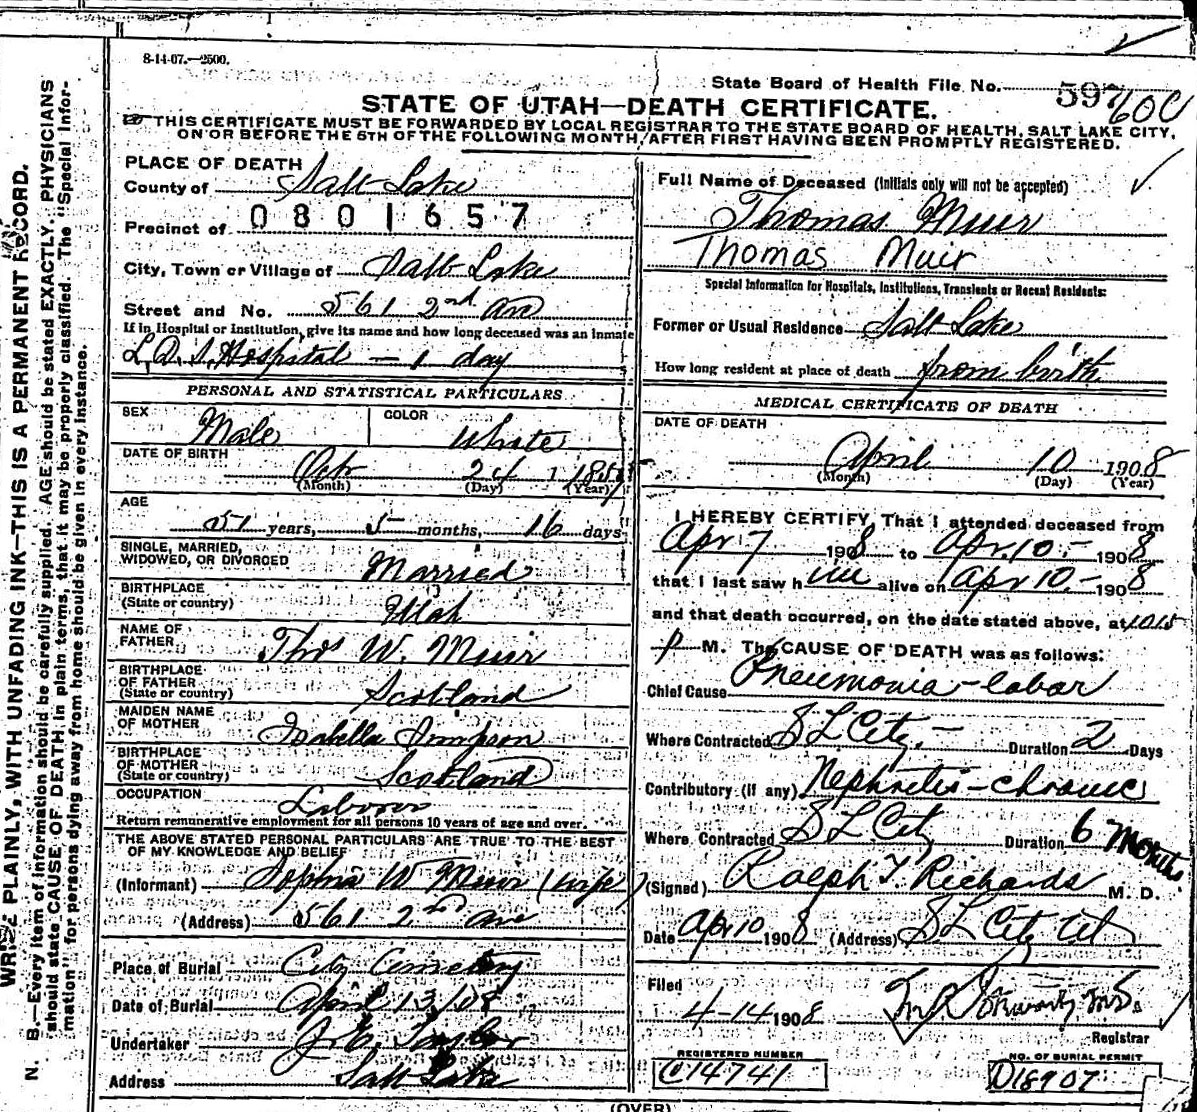 8-14-07.—2500.
State Board of Health File No. 597
600
STATE OF UTAH—DEATH CERTIFICATE.
THIS CERTIFICATE MUST BE FORWARDED BY LOCAL REGISTRAR TO THE STATE BOARD OF HEALTH, SALT LAKE CITY,
ON OR BEFORE THE 5TH OF THE FOLLOWING MONTH, AFTER FIRST HAVING BEEN PROMPTLY REGISTERED.
WRITE PLAINLY, WITH UNFADING INK—THIS IS A PERMANENT RECORD.
N. B.—Every item of information should be carefully supplied. AGE should be stated EXACTLY. PHYSICIANS
should state CAUSE OF DEATH in plain terms, that it may be properly classified. The "Special Infor-
mation" for persons dying away from home should be given in every instance.
PLACE OF DEATH
County of Salt Lake
0801657
Precinct of
City, Town or Village of Salt Lake
Street and No. 561 2nd Ave
If in Hospital or Institution, give its name and how long deceased was an inmate
L.D.S. Hospital — 1 day
PERSONAL AND STATISTICAL PARTICULARS
SEX Male
COLOR White
DATE OF BIRTH
Oct 24 1
(Month) (Day) (Year)
AGE
51 years, 5 months, 16 days
SINGLE, MARRIED,
WIDOWED, OR DIVORCED Married
BIRTHPLACE
(State or country) Utah
NAME OF
FATHER Thos W. Muir
BIRTHPLACE
OF FATHER
(State or country) Scotland
MAIDEN NAME
OF MOTHER Isabella Simpson
BIRTHPLACE
OF MOTHER
(State or country) Scotland
OCCUPATION Laborer
Return remunerative employment for all persons 10 years of age and over.
THE ABOVE STATED PERSONAL PARTICULARS ARE TRUE TO THE BEST
OF MY KNOWLEDGE AND BELIEF
(Informant) Sophia W Muir (wife)
(Address) 561 2nd Ave
Place of Burial City Cemetery
Date of Burial April 13/08
Undertaker
Address Salt Lake
Full Name of Deceased (Initials only will not be accepted)
Thomas Muir
Thomas Muir
Special Information for Hospitals, Institutions, Transients or Recent Residents:
Former or Usual Residence Salt Lake
How long resident at place of death from birth
MEDICAL CERTIFICATE OF DEATH
DATE OF DEATH
April 10 1908
(Month) (Day) (Year)
I HEREBY CERTIFY That I attended deceased from
Apr 7 1908 to Apr. 10.- 1908
that I last saw him alive on Apr 10.- 1908
and that death occurred, on the date stated above, at 1015
P M. The CAUSE OF DEATH was as follows:
Chief Cause Pneumonia - lobar
Where Contracted S L City.- Duration 2 Days
Contributory (if any) Nephritis - chronic
Where Contracted S L City Duration 6 Months
(Signed) Ralph T. Richards M. D.
Date Apr 10 1908 (Address) S L City Ut
Filed
4-14 1908
Registrar
REGISTERED NUMBER
C14741
NO. OF BURIAL PERMIT
D18907
(OVER)